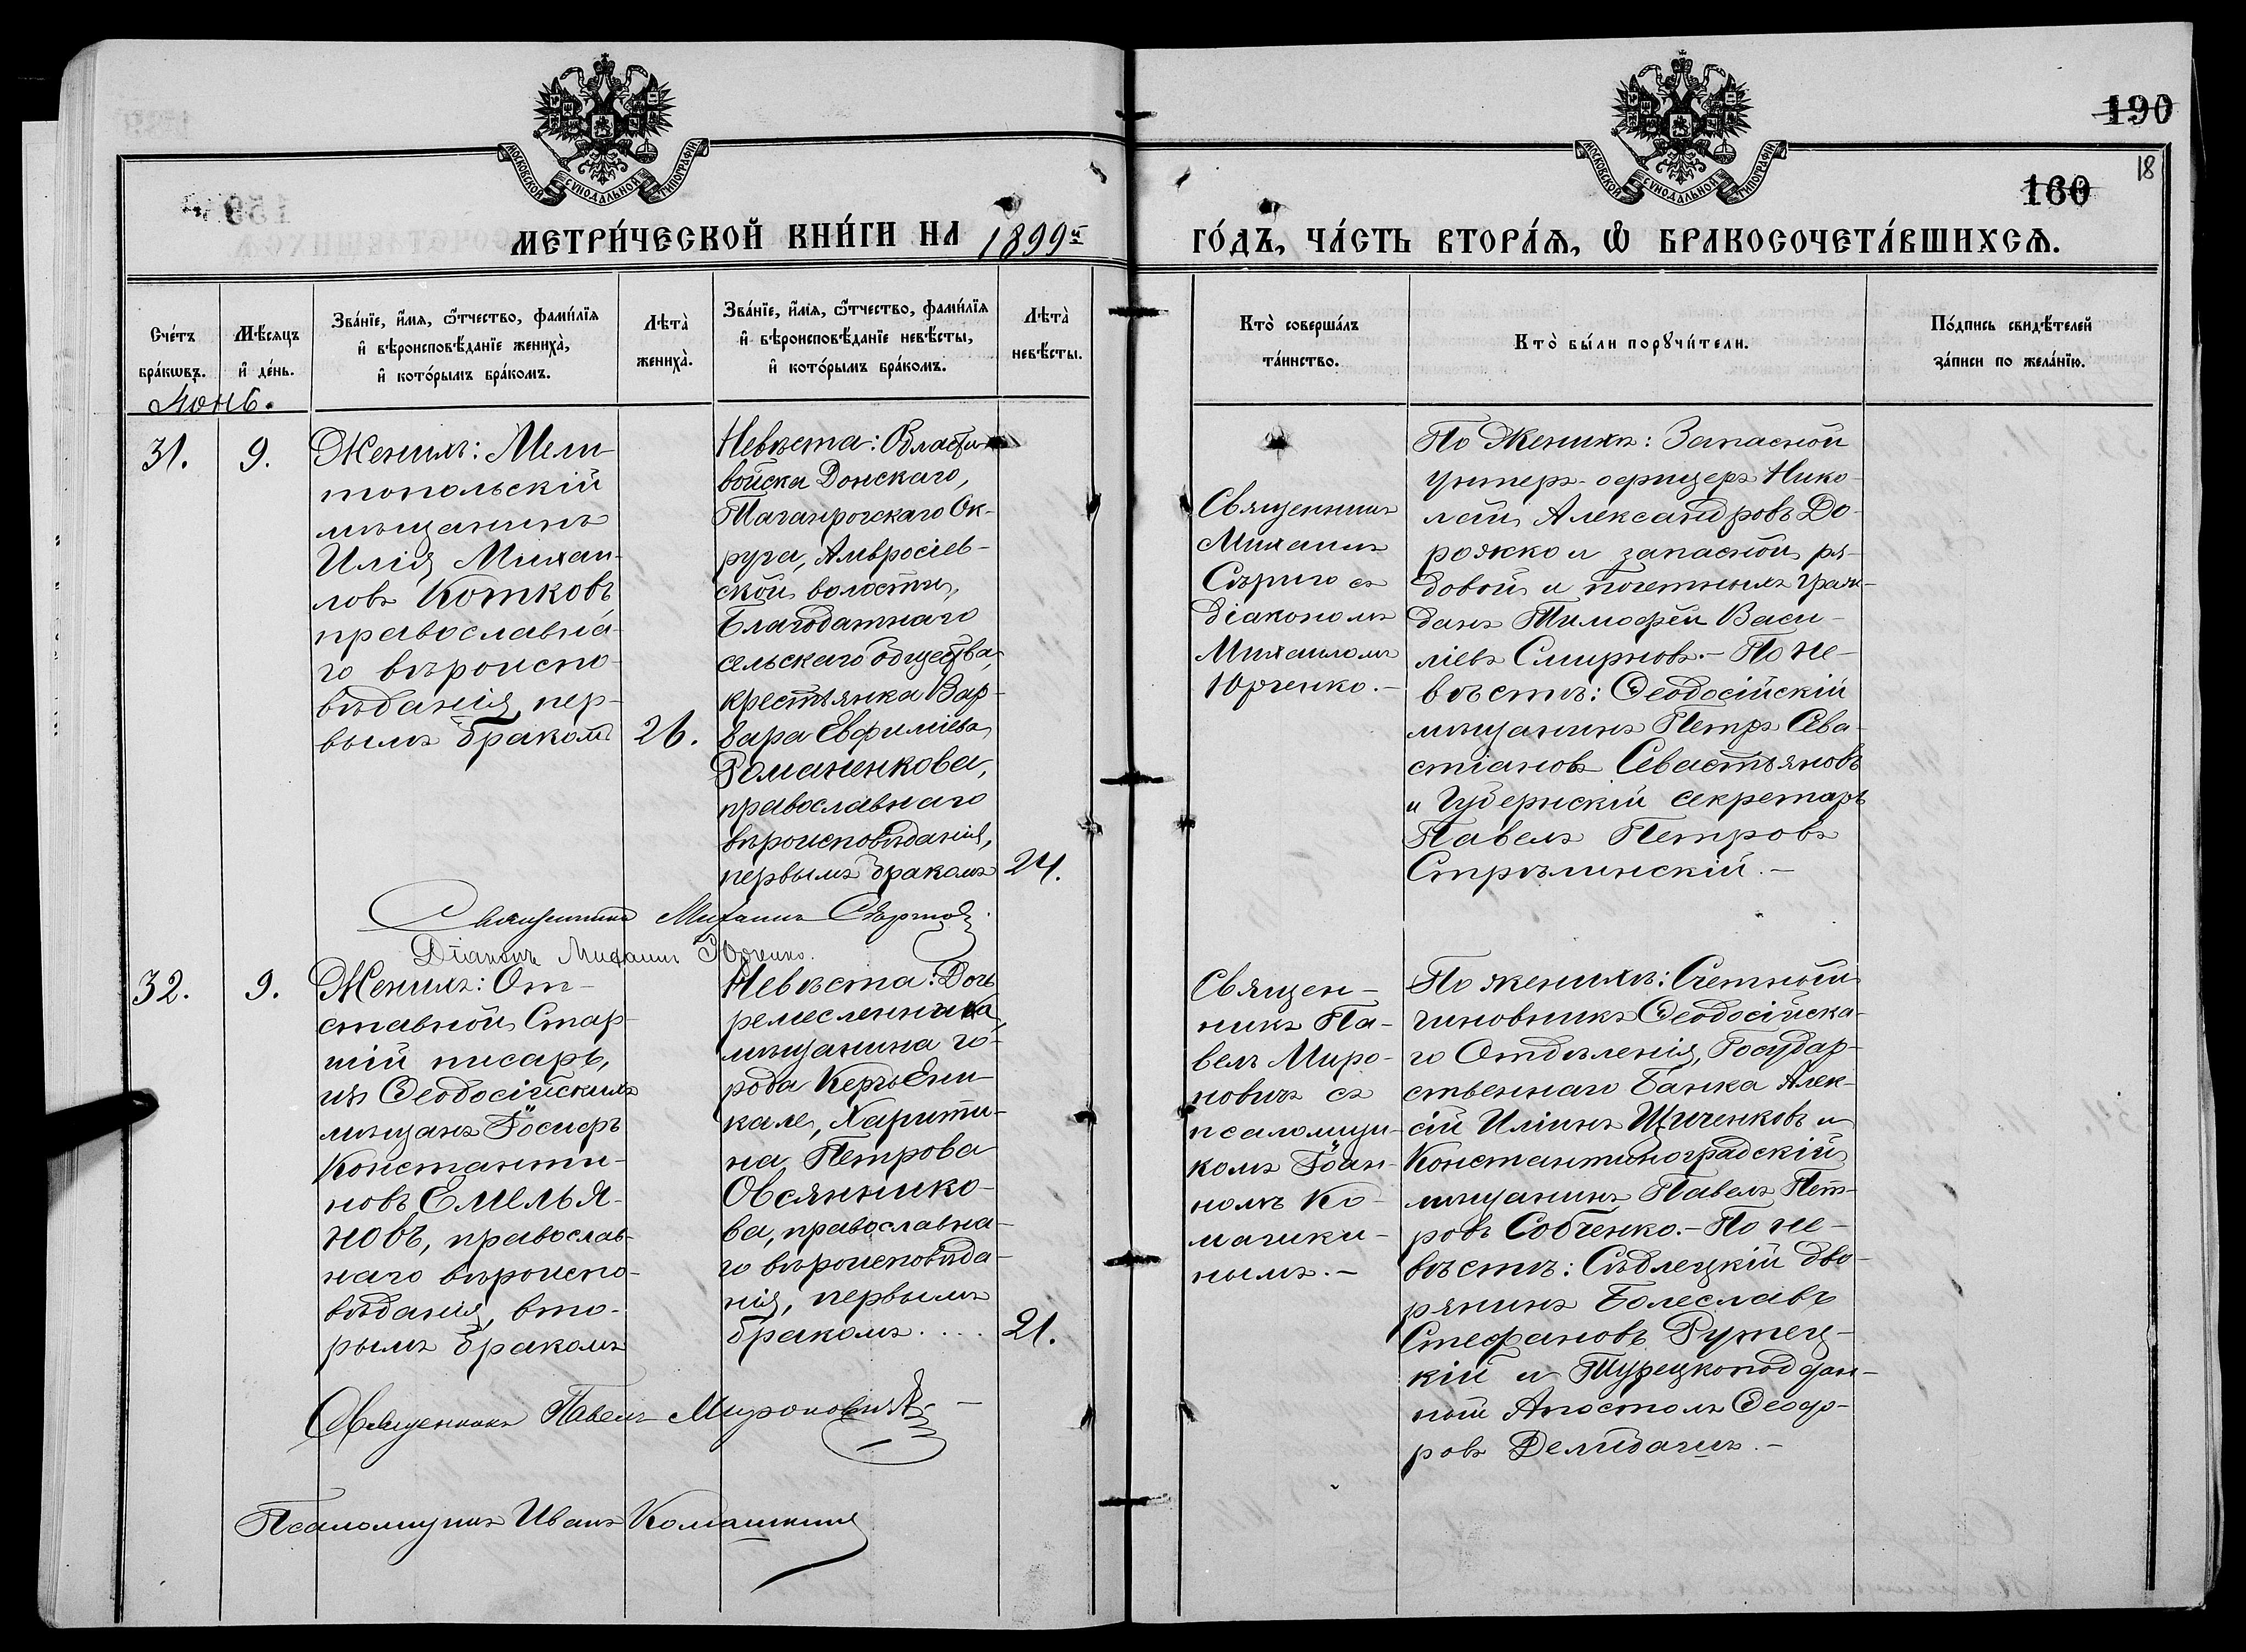 190
18
160
МОСКОВСКОЙ СѴНОДАЛЬНОЙ ТИПОГРАФІИ
МОСКОВСКОЙ СѴНОДАЛЬНОЙ ТИПОГРАФІИ
МЕТРИ́ЧЕСКОЙ КНИ́ГИ НА 1899й ГО́ДЪ, ЧА́СТЬ ВТОРА́Ѧ, Ѽ БРАКОСОЧЕТА́ВШИХСѦ.
Сче́тъ
бра́кѡвъ.
Мѣ́сяцъ
и҆ де́нь.
Зва́нїе, и҆́мѧ, ѻ҆́тчество, фами́лїѧ
и҆ вѣроисповѣ́данїе жениха̀,
и҆ кото́рымъ бра́комъ.
Лѣта̀
жениха̀.
Зва́нїе, и҆́мѧ, ѻ҆́тчество, фами́лїѧ
и҆ вѣроисповѣ́данїе невѣ́сты,
и҆ кото́рымъ бра́комъ.
Лѣта̀
невѣ́сты.
Кто̀ соверша́лъ
та́инство.
Кто̀ бы́ли порꙋчи́тели.
По́дпись свидѣ́телей
за́писи по жела́нїю.
Іюнь.
31.
9.
Женихъ: Мели-
топольскій
мѣщанинъ
Илія Михаи-
ловъ Котковъ
православна-
го вѣроиспо-
вѣданія, пер-
вымъ бракомъ
26.
Невѣста: Области
войска Донскаго,
Таганрогскаго Ок-
руга, Амвросіев-
ской волости,
Благодатнаго
сельскаго общества,
крестьянка Вар-
вара Евфиміева
Романенкова,
православнаго
вѣроисповѣданія,
первымъ бракомъ
24.
Священникъ
Михаилъ
Сѣриго съ
діакономъ
Михаиломъ
Юрченко.-
По Женихѣ: Запасной
унтеръ-офицеръ Нико-
лай Александровъ До-
рожко и запасной ря-
довой и почетный граж-
данъ Тимофей Васи-
ліевъ Смирновъ.- По не-
вѣстѣ: Ѳеодосійскій
мѣщанинъ Петръ Сева-
стіановъ Севастьяновъ
и Губернскій секретарь
Павелъ Петровъ
Стрѣлинскій.-
Священникъ Михаилъ
Діаконъ Михаилъ Юрченко.
32.
9.
Женихъ: От-
ставной Стар-
шій писарь,
изъ Ѳеодосійскихъ
мѣщанъ Іосифъ
Константи-
новъ Емелья-
новъ, православ-
наго вѣроиспо-
вѣданія, вто-
рымъ бракомъ
Невѣста: Дочь
ремесленника,
мѣщанина го-
рода Керчь Ени-
кале, Харити-
на Петрова
Овсяннико-
ва, православна-
го вѣроисповѣда-
нія, первымъ
бракомъ....
21.
Священ-
никъ Па-
велъ Миро-
новичъ съ
псаломщи-
комъ Іоан-
номъ Ко-
машки-
нымъ.-
По женихѣ: Счетный
чиновникъ Ѳеодосійска-
го Отдѣленія, Государ-
ственнаго Банка Алек-
сій Иліинъ Щиченковъ и
Константиноградскій
мѣщанинъ Павелъ Пет-
ровъ Собченко.- По не-
вѣстѣ: Сѣдлецкій дво-
рянинъ Болеславъ
Стефановъ Рутец-
кій и Турецкоподдан-
ный Апостолъ Ѳеодо-
ровъ
Священникъ Павелъ Мироновичъ
Псаломщикъ Иванъ Комашкинъ